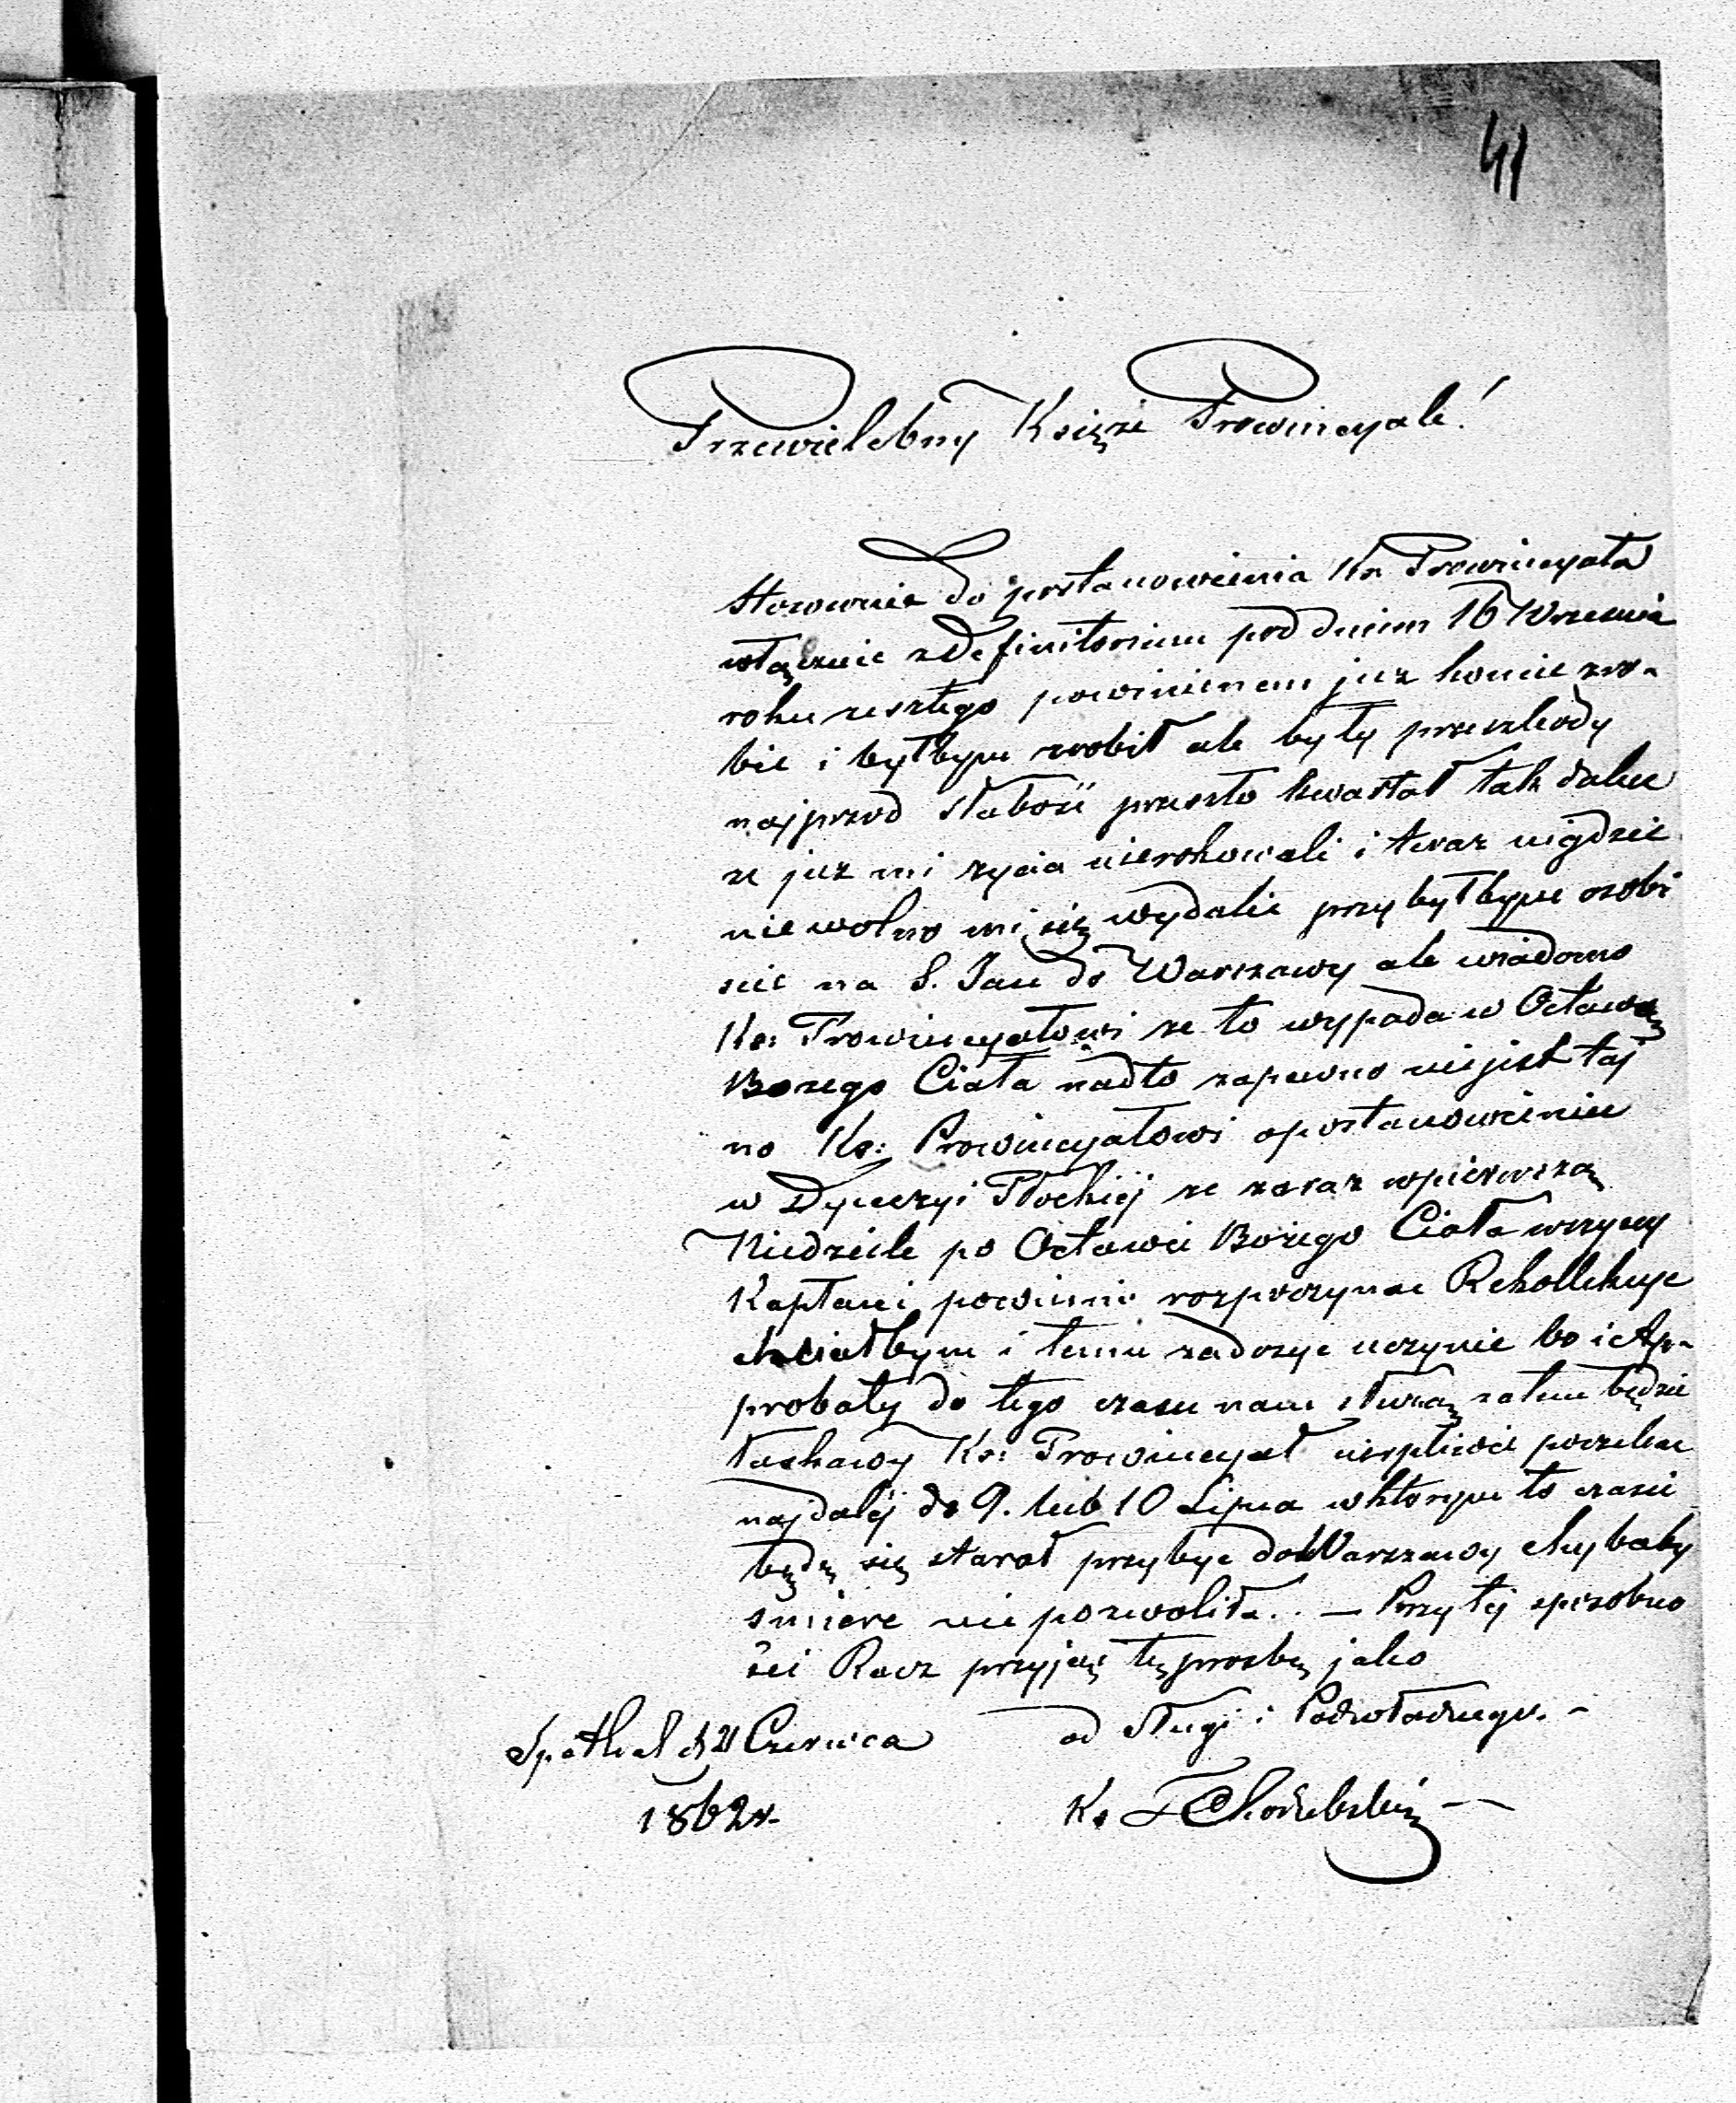 41
Przewielebny Księze Prowincyale!
Stosownie do postanowienia Ks. Prowincyała
włącznie z Definitorium pod dniem 16 Wrzesnia
roku zeszłego powinienem juz koniec zro-
bic i byłbym zrobił ale były przeszkody
najprzod słabość przeszło kwartał tak dalece
ze juz mi zycia nierokowali i teraz nigdzie
nie wolno mi się wydalic przybyłbym osobi
scie na S. Jan do Warszawy ale wiadomo
Ks: Prowincyałowi ze to wypada w Octawę
Bozego Ciała nadto zapewno niejest taj
no Ks: Prowincyałowi opostanowieniu
w Dyecezyi Płockiej ze zaraz wpierwszą
Niedziele po Octawie Bożego Ciała wszyscy
Kapłani powinni rozpoczynac Rekollekcye
chciałbym i temu zadosyc uczynic bo i Ap-
probaty do tego czasu nam służą zatem będzie
łaskawy Ks: Prowincyał cierpliwie poczekac
najdalėj do 9. lub 10 Lipca wktorym to czasie
będę się starał przybyc do Warszawy chybaby
smierc nie pozwoliła.. — Przy tej sposobno
ści Racz przyjąć tę prosbę jako
od Sługi i Podwładnego. -
Spethal d 21 Czerwca
1862 r.
Ks F Chodubski —